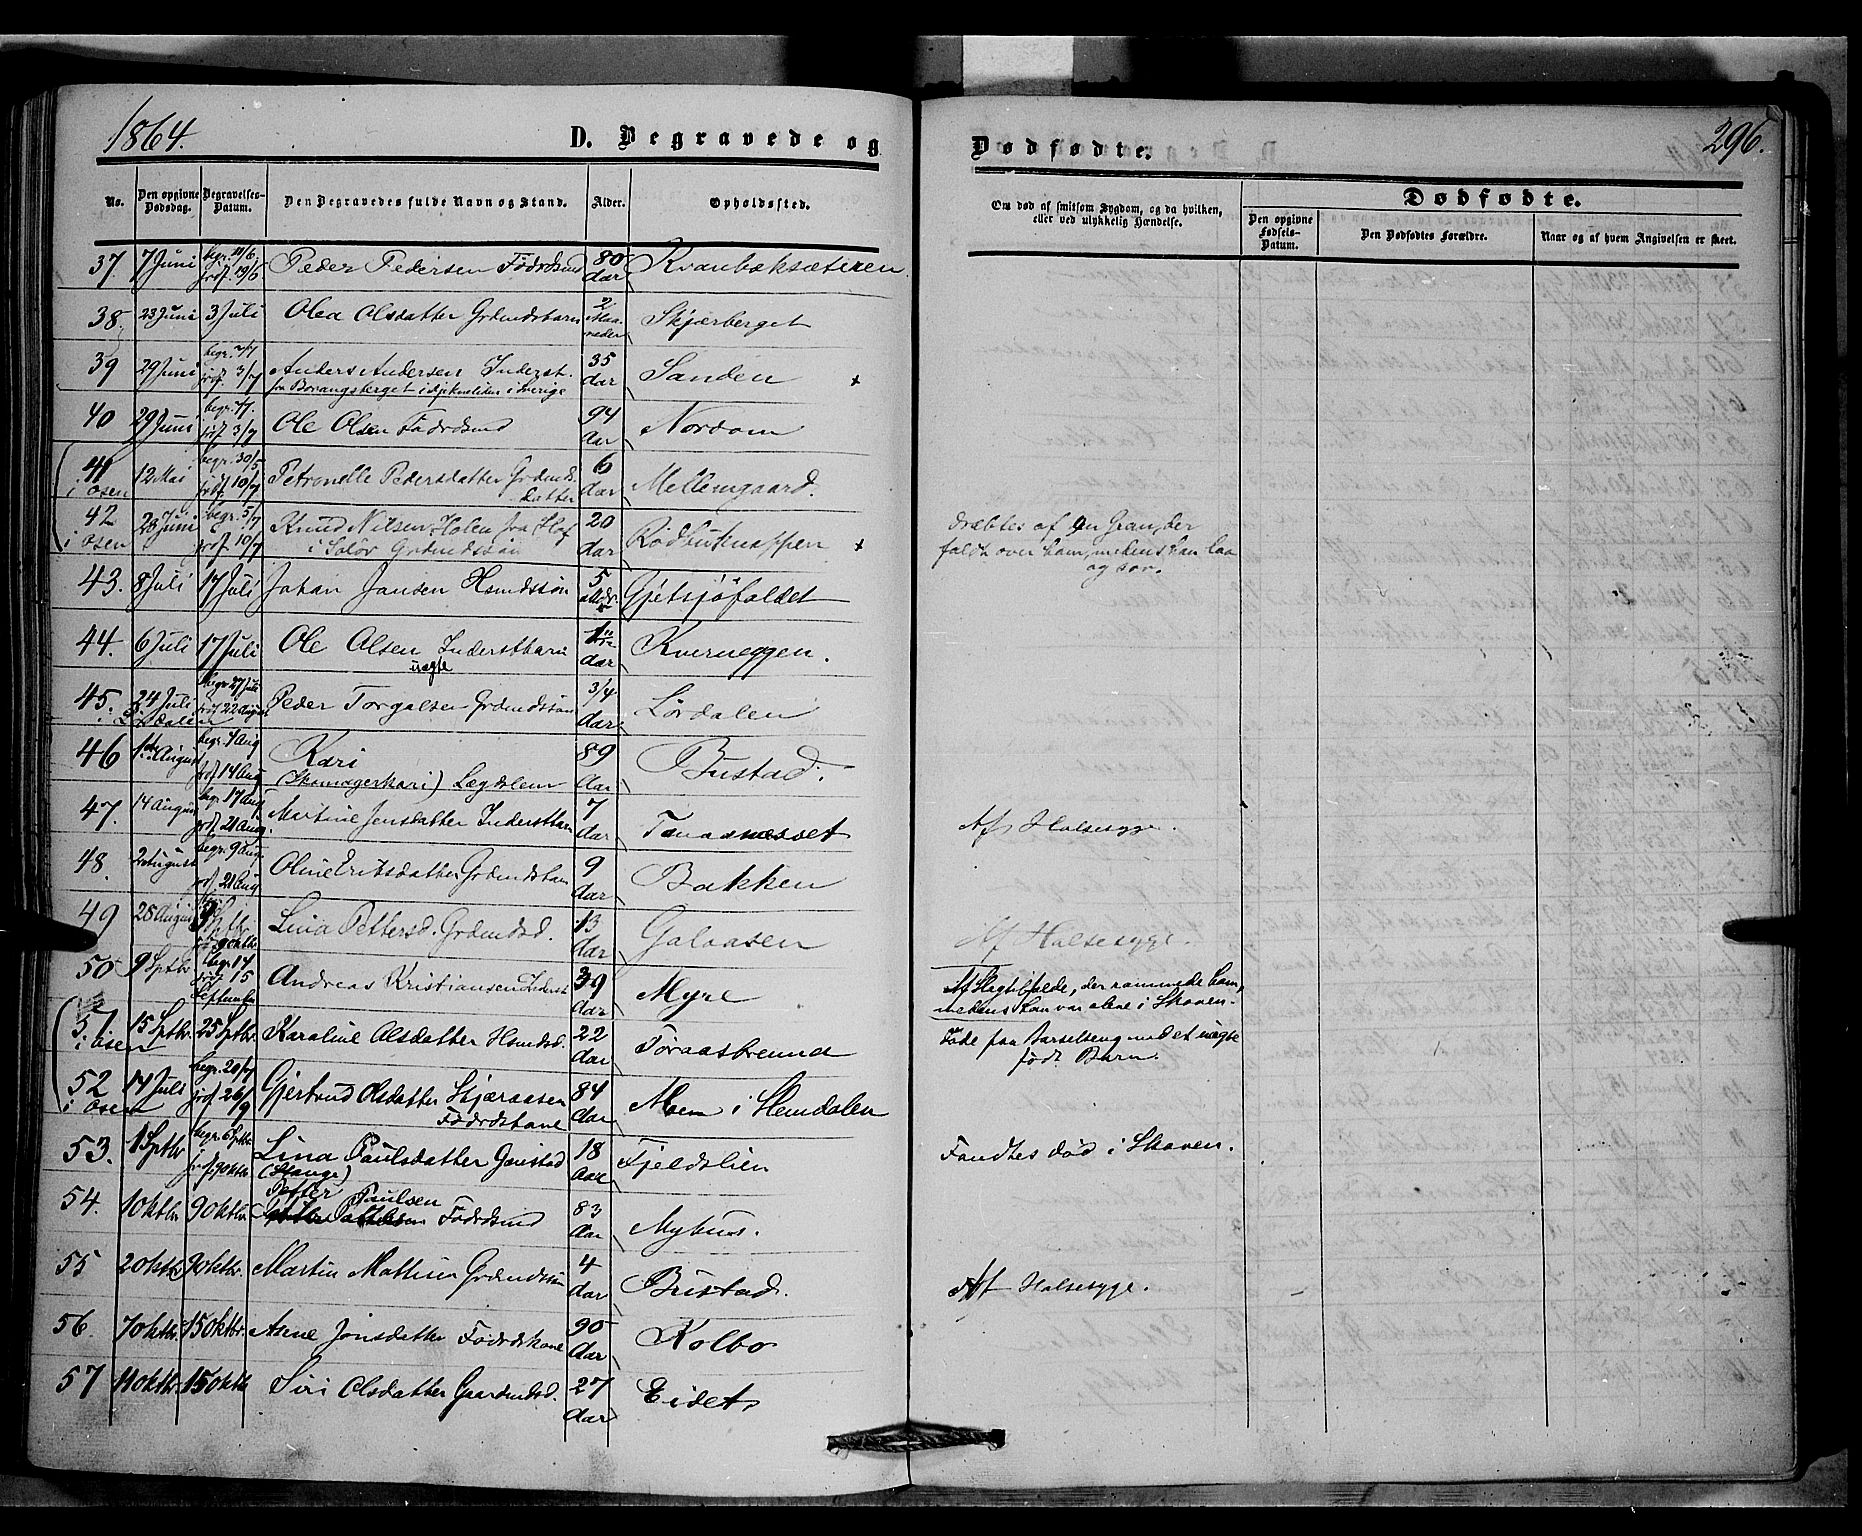 1864.
D. Begravede og
Dødfødte.
296.
No.
Den opgivne Dødsdag.
Begravelses-Datum.
Den Begravedes fulde Navn og Stand.
Alder.
Opholdssted.
Om død af smitsom Sygdom, og da hvilken,
eller ved ulykkelig Hændelse.
Dødfødte.
Den opgivne Fødsels-Datum.
Den Dødfødtes Forældre.
Naar og af hvem Angivelsen er skeet.
37. 7 Juni begr. 11/6 jrdf. 19/6 Peder Pedersen Födrdsmd 80 Aar Kvanbæksæteren
38. 23 Juni 3 Juli Olea Olsdatter Grdmdsbarn 2 Maaneder Skjærberget
39 29 Juni begr. 2/7 jrdf 3/7 Anders Andersen Inderst. 35 Aar Sanden +
fra Borangsberget i i Sverige
40 29 Juni begr. /7. jrdf 3/7 Ole Olsen Födrdsmd 94 Aar Nordom
41 i Osen 12 Mai begr. 30/5 jrdf. 10/7 Petronelle Pedersdatter Grdmds. datter 6 Aar Mellemgaard.
42 i Osen 28 Juni begr. 5/7 jrdf. 10/7 Knud Nilsen Holen fra Hof 20 Aar Rödbuknappen +
i Solör Grdmdssön
dræbtes af en Gran, der
faldt over ham, medens han laa
og sov.
43. 8 Juli 17 Juli Johan Jansen Hsmdssön 5 Mdr. Gjetsjöfaldet
44. 6 Juli 17 Juli Ole Olsen Inderstbarn 1 Aar Kverneggen.
uægte
45. i Lördalen 24 Juli begr 27 Juli jrdf 22 August Peder Torgalsen Grdmdssön 3/4 Aar Lördalen
46 1ste August begr. 7 Aug jrdf 14 Aug Kari 89 Aar Bustad.
(Skomagerkari) Lægdslem
47. 14 August begr. 17 Aug jrdf. 21 Aug. Martine Jensdatter Inderstbarn 7 Aar Tanaanesset
Af Halsesyge.
48. 2 August begr. 9 Aug. jrdf. 21 Aug Oline Eriksdatter Grdmdsbarn 9 Aar Bakken
49 28 August Sptbr jrdf. 9 Oktbr Lina Pettersd. Grdmdsd. 13 Aar Galaasen
Af Halsesyge.
50 9 Sptbr begr. 14 jrdf 15 September Andreas Kristiansen Inderst 39 Aar Myre
Af Slagtilfælde, der rammede ham,
medens han var alene i Skoven.
51 i Osen 15 Sptbr. 25 Sptbr. Karoline Olsdatter Hsmdsd. 22 Aar Töraasbrenna
Döde paa Barselseng med et uægte
födt Barn.
52 i Osen 14 Juli begr. 20/7 jrdf 26/9 Gjertrud Olsdatter Skjæraasen 84 Aar Moen i Slemdalen
Födrdskone
53. 1 Sptbr begr. 6 Sptbr. jrdf 9 Oktbr. Lina Paulsdatter 18 Aar Fjeldslien
(Stange)
Fandtes död i Skoven.
54. 1 Oktbr 9 Oktbr. Petter Paulsen Födrdsmd 83 Aar Myhus.
55 2 Oktbr 9 Oktbr. Martin Mathisen Grdmdssön 4 Aar Bustad.
Af Halsesyge.
56. 7 Oktbr. 15 Oktbr. Asene Jonsdatter Födrdskone 90 Aar Kolbo
57 11 Oktbr. 15 Oktbr Siri Olsdatter Gaardmdsd. 27 Aar Eidet